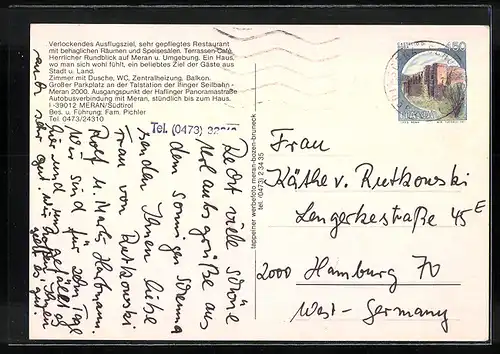 Verlockendes Ausflugsziel, sehr gepflegtes Restaurant
mit behaglichen Räumen und Speisesälen. Terrassen-Café
Herrlicher Rundblick auf Meran u. Umgebung. Ein Haus,
wo man sich wohl fühlt, ein beliebtes Ziel der Gäste aus
Stadt u. Land.
Zimmer mit Dusche, WC, Zentralheizung, Balkon.
Großer Parkplatz an der Talstation der Ifinger Seilbahn -
Meran 2000. Ausgangspunkt der Haflinger Panoramastraße
Autobusverbindung mit Meran, stündlich bis zum Haus.
I-39012 MERAN/Südtirol
Bes. u. Führung: Fam. Pichler
Tel. 0473/24310
Tel. (0473)
Recht viele schöne
Urlaubsgrüße aus
dem sonnigen
senden Ihnen liebe
Frau von Rutkowski
Rolf u. Hartmann.
Wir sind für zehn Tage
hier und uns gefällt es
auch sehr gut. Wir hoffen Ihnen
geht es gut.
tappeiner werbefoto meran-bozen-bruneck
tel. (0473) 2 34 35
450
Frau
Käthe v. Rutkowski
Lengerkestraße 45E
2000 Hamburg 70
West-Germany